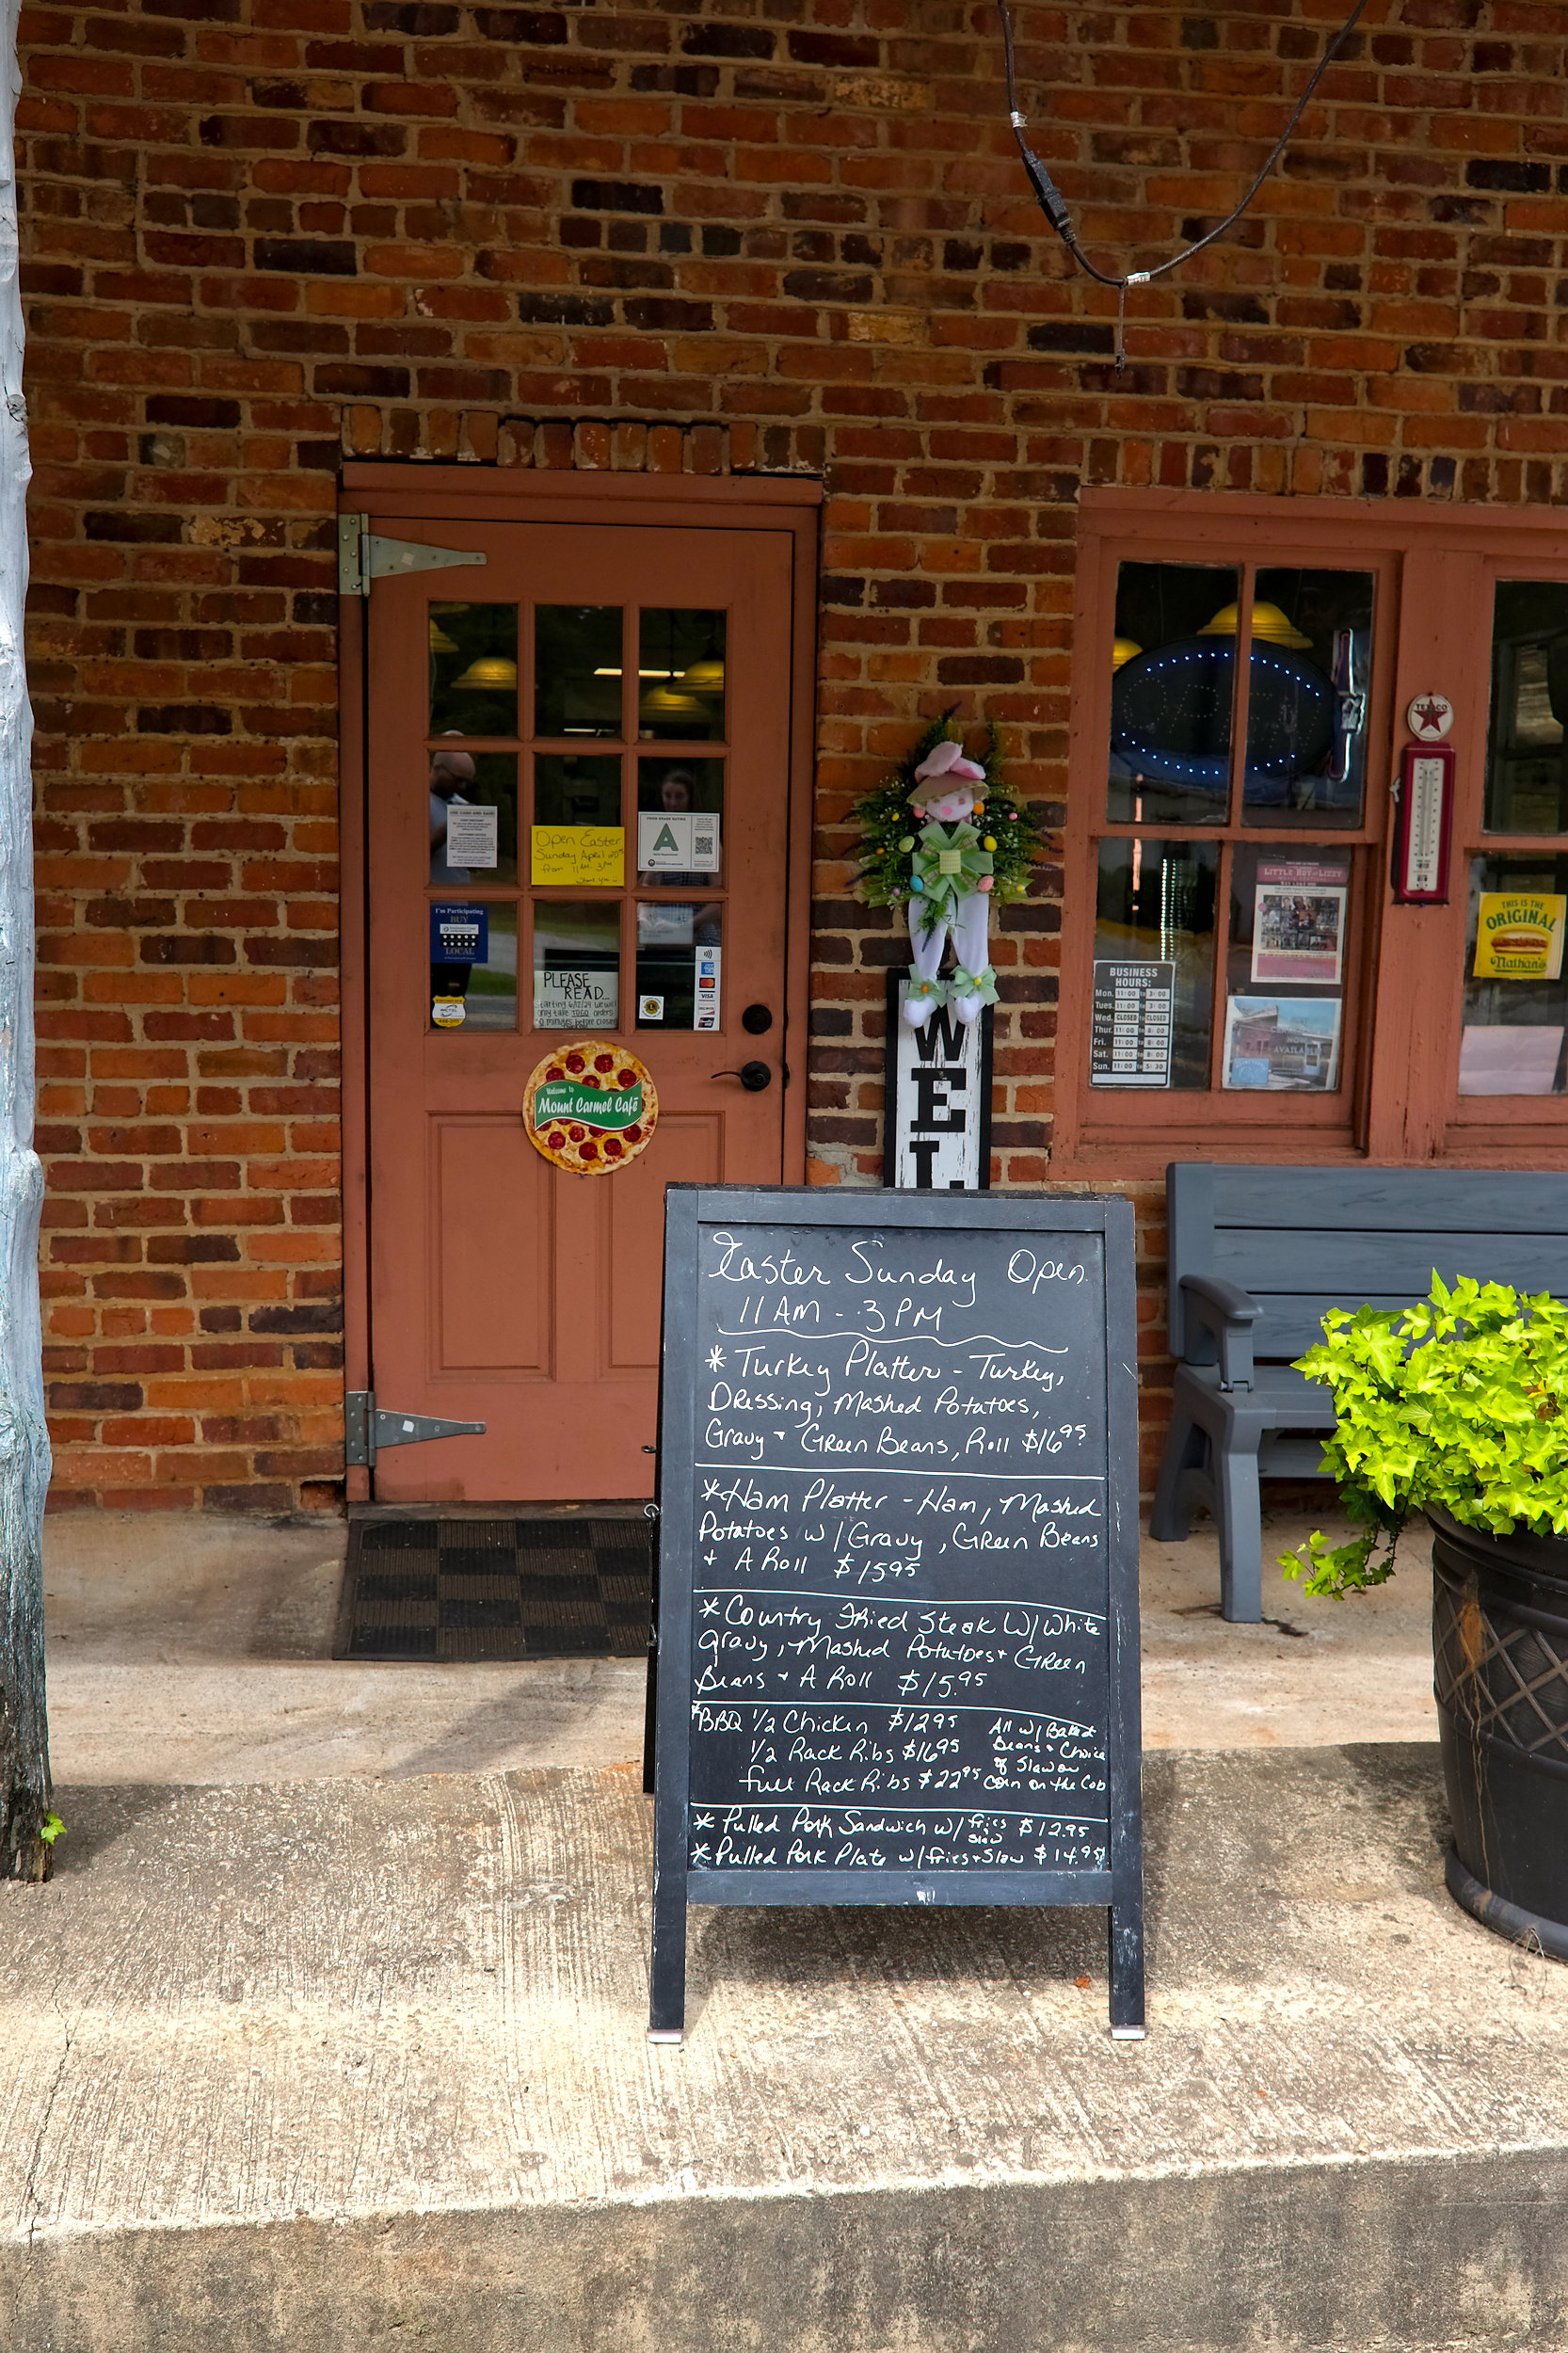 TEXACO
WE CARD AND BAG!
Open Easter
Sunday April 20th
from 11AM-3PM
Thank You
FOOD GRADE RATING
A
I'm Participating
BUY
LOCAL
PLEASE
READ...
Starting 6/12/24 we will
only take TOGO orders
minutes before close
VISA
Welcome to
Mount Carmel Café
LITTLE ROY & LIZZY
THIS IS THE
ORIGINAL
Nathan's
BUSINESS
HOURS:
Mon. 11:00 to 3:00
Tues. 11:00 to 3:00
Wed. CLOSED to CLOSED
Thur. 11:00 to 8:00
Fri. 11:00 to 8:00
Sat. 11:00 to 8:00
Sun. 11:00 to 3:30
AVAILA
W
E
L
Easter Sunday Open
11 AM - 3 PM
* Turkey Platter - Turkey,
Dressing, Mashed Potatoes,
Gravy + Green Beans, Roll $16.95
* Ham Platter - Ham, Mashed
Potatoes w/Gravy, Green Beans
+ A Roll $15.95
* Country Fried Steak W/White
gravy, Mashed Potatoes + Green
Beans + A Roll $15.95
*BBQ 1/2 Chicken $12.95
1/2 Rack Ribs $16.95
full Rack Ribs $22.95
All w/Baked
Beans + Choice
of Slaw or
Corn on the Cob
* Pulled Pork Sandwich w/fries slaw $12.95
* Pulled Pork Plate w/fries+Slaw $14.95